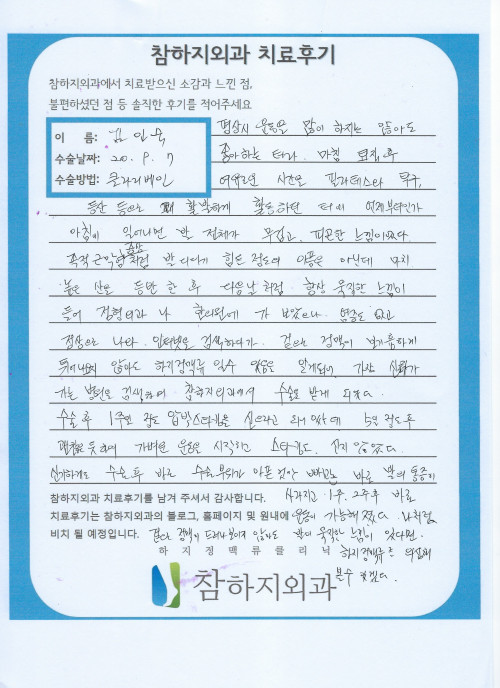 참하지외과 치료후기
참하지외과에서 치료받으신 소감과 느낀 점,
불편하셨던 점 등 솔직한 후기를 적어주세요
이 름:
수술날짜: 20. 9. 7
수술방법: 클라리베인
평상시 운동을 많이 하지는 않아도
좋아하는 터라. 마침 퇴직 후
여유로운 시간은 필라테스와 탁구,
등산 등으로 활발하게 활동하던 터에 언제부터인가
아침에 일어나면 발 전체가 무겁고, 피곤한 느낌이었다.
족저근막염 증상처럼 발 디디기 힘든 정도의 아픔은 아닌데 마치
높은 산을 등반한 후 다음날처럼 항상 욱직한 느낌이
들어 정형외과나 한의원에 가 보았으나 염증도 없고
정상으로 나와. 인터넷을 검색하다가. 겉으로 정맥이 
않아도 하지정맥류일 수 있음을 알게되어, 가장 신뢰가
가는 병원을 검색하여 참하지외과에서 수술을 받게 되었다.
수술 후 1주일 정도 압박스타킹을 신으라고 되어 있는데 5일 정도 후
가벼운 운동을 시작하고 스타킹도. 신지 않았다.
신기하게도 수술 후 바로 수술부위가 아픈 것만 빼고는 바로 발의 통증이
참하지외과 치료후기를 남겨 주셔서 감사합니다. 사라지고. 1주. 2주후 바로
치료후기는 참하지외과의 블로그, 홈페이지 및 원내에 운동이 가능해졌다. 나처럼
비치 될 예정입니다. 겉으로 정맥이 드러나보이지 않아도 발이 욱직한 느낌이 있다면.
하 지 정 맥 류 클 리 닉 하지정맥류를 의심해
참하지외과 볼수 있겠다.